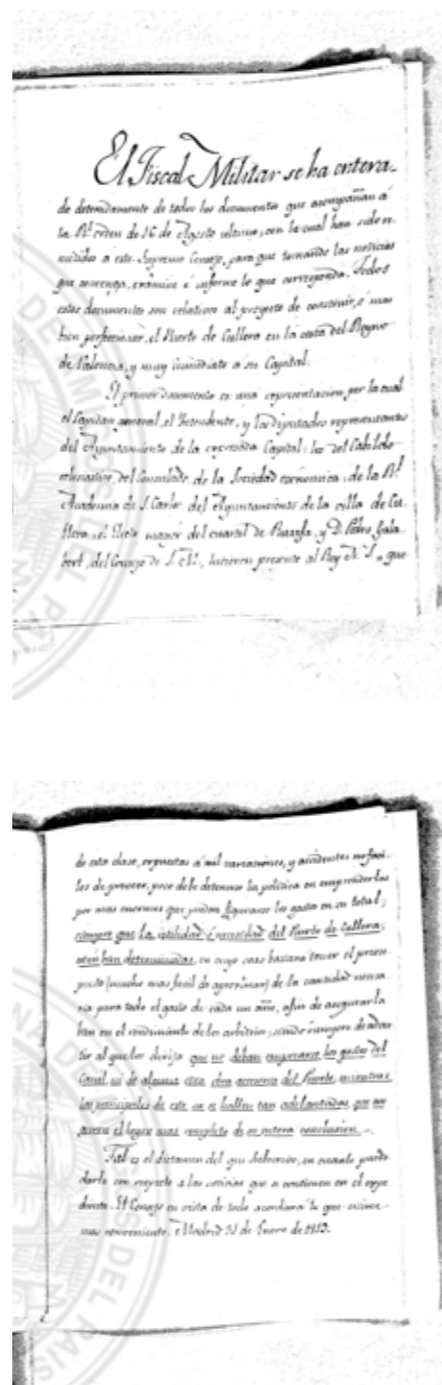 El Fiscal Militar se ha entera-
do detenidamente de todos los documentos que acompañan á
la Rl. orden de 16 de Agosto ultimo, con la cual han sido re-
mitidos á este Supremo Consejo, para que tomando las noticias
que convenga, examine é informe lo que corresponda. Todos
estos documentos son relativos al proyecto de construir, ó mas
bien perfeccionar, el Puerto de Cullera en la costa del Reyno
de Valencia, y muy inmediato á su Capital.
El primer documento es una representacion, por la cual
el Capitan general, el Yntendente, y los Diputados representantes
del Ayuntamiento de la expresada Capital: los del Cabildo
eclesiastico, del Consulado, de la Sociedad economica, de la Rl.
Academia de S. Carlos, del Ayuntamiento de la villa de Cu-
llera, el mayor del cuartel de y D. Pedro Gala
bert, del Consejo de S. M., hicieron presente al Rey N. S. que
de esta clase, expuestas á mil variaciones, y accidentes no faci-
les de preveer, poco debe detenerse la politica en emprenderlas
por mas enormes que puedan figurarse los gastos en su total;
siempre que la utilidad é necesidad del Puerto de Cullera,
esten bien determinadas, en cuyo caso bastara tener el presu
puesto (mucho mas facil de aproximar) de la cantidad necesa
ria para todo el gasto de cada un año, afin de asegurarla
bien en el rendimiento de los arbitrios; siendo siempre de adver
tir al que los dirija que no deban empezarse los gastos del
Canal, ni de alguna otra obra accesoria del Puerto, mientras
los principales de este no se hallen tan adelantados, que ase
guren el logro mas completo de su entera conclusion.
Tal es el dictamen del que subscribe, en cuanto puede
darlo con respecto á las noticias que se contienen en el expe
diente. El Consejo en vista de todo acordará lo que estime
mas conveniente. Madrid 31 de Enero de